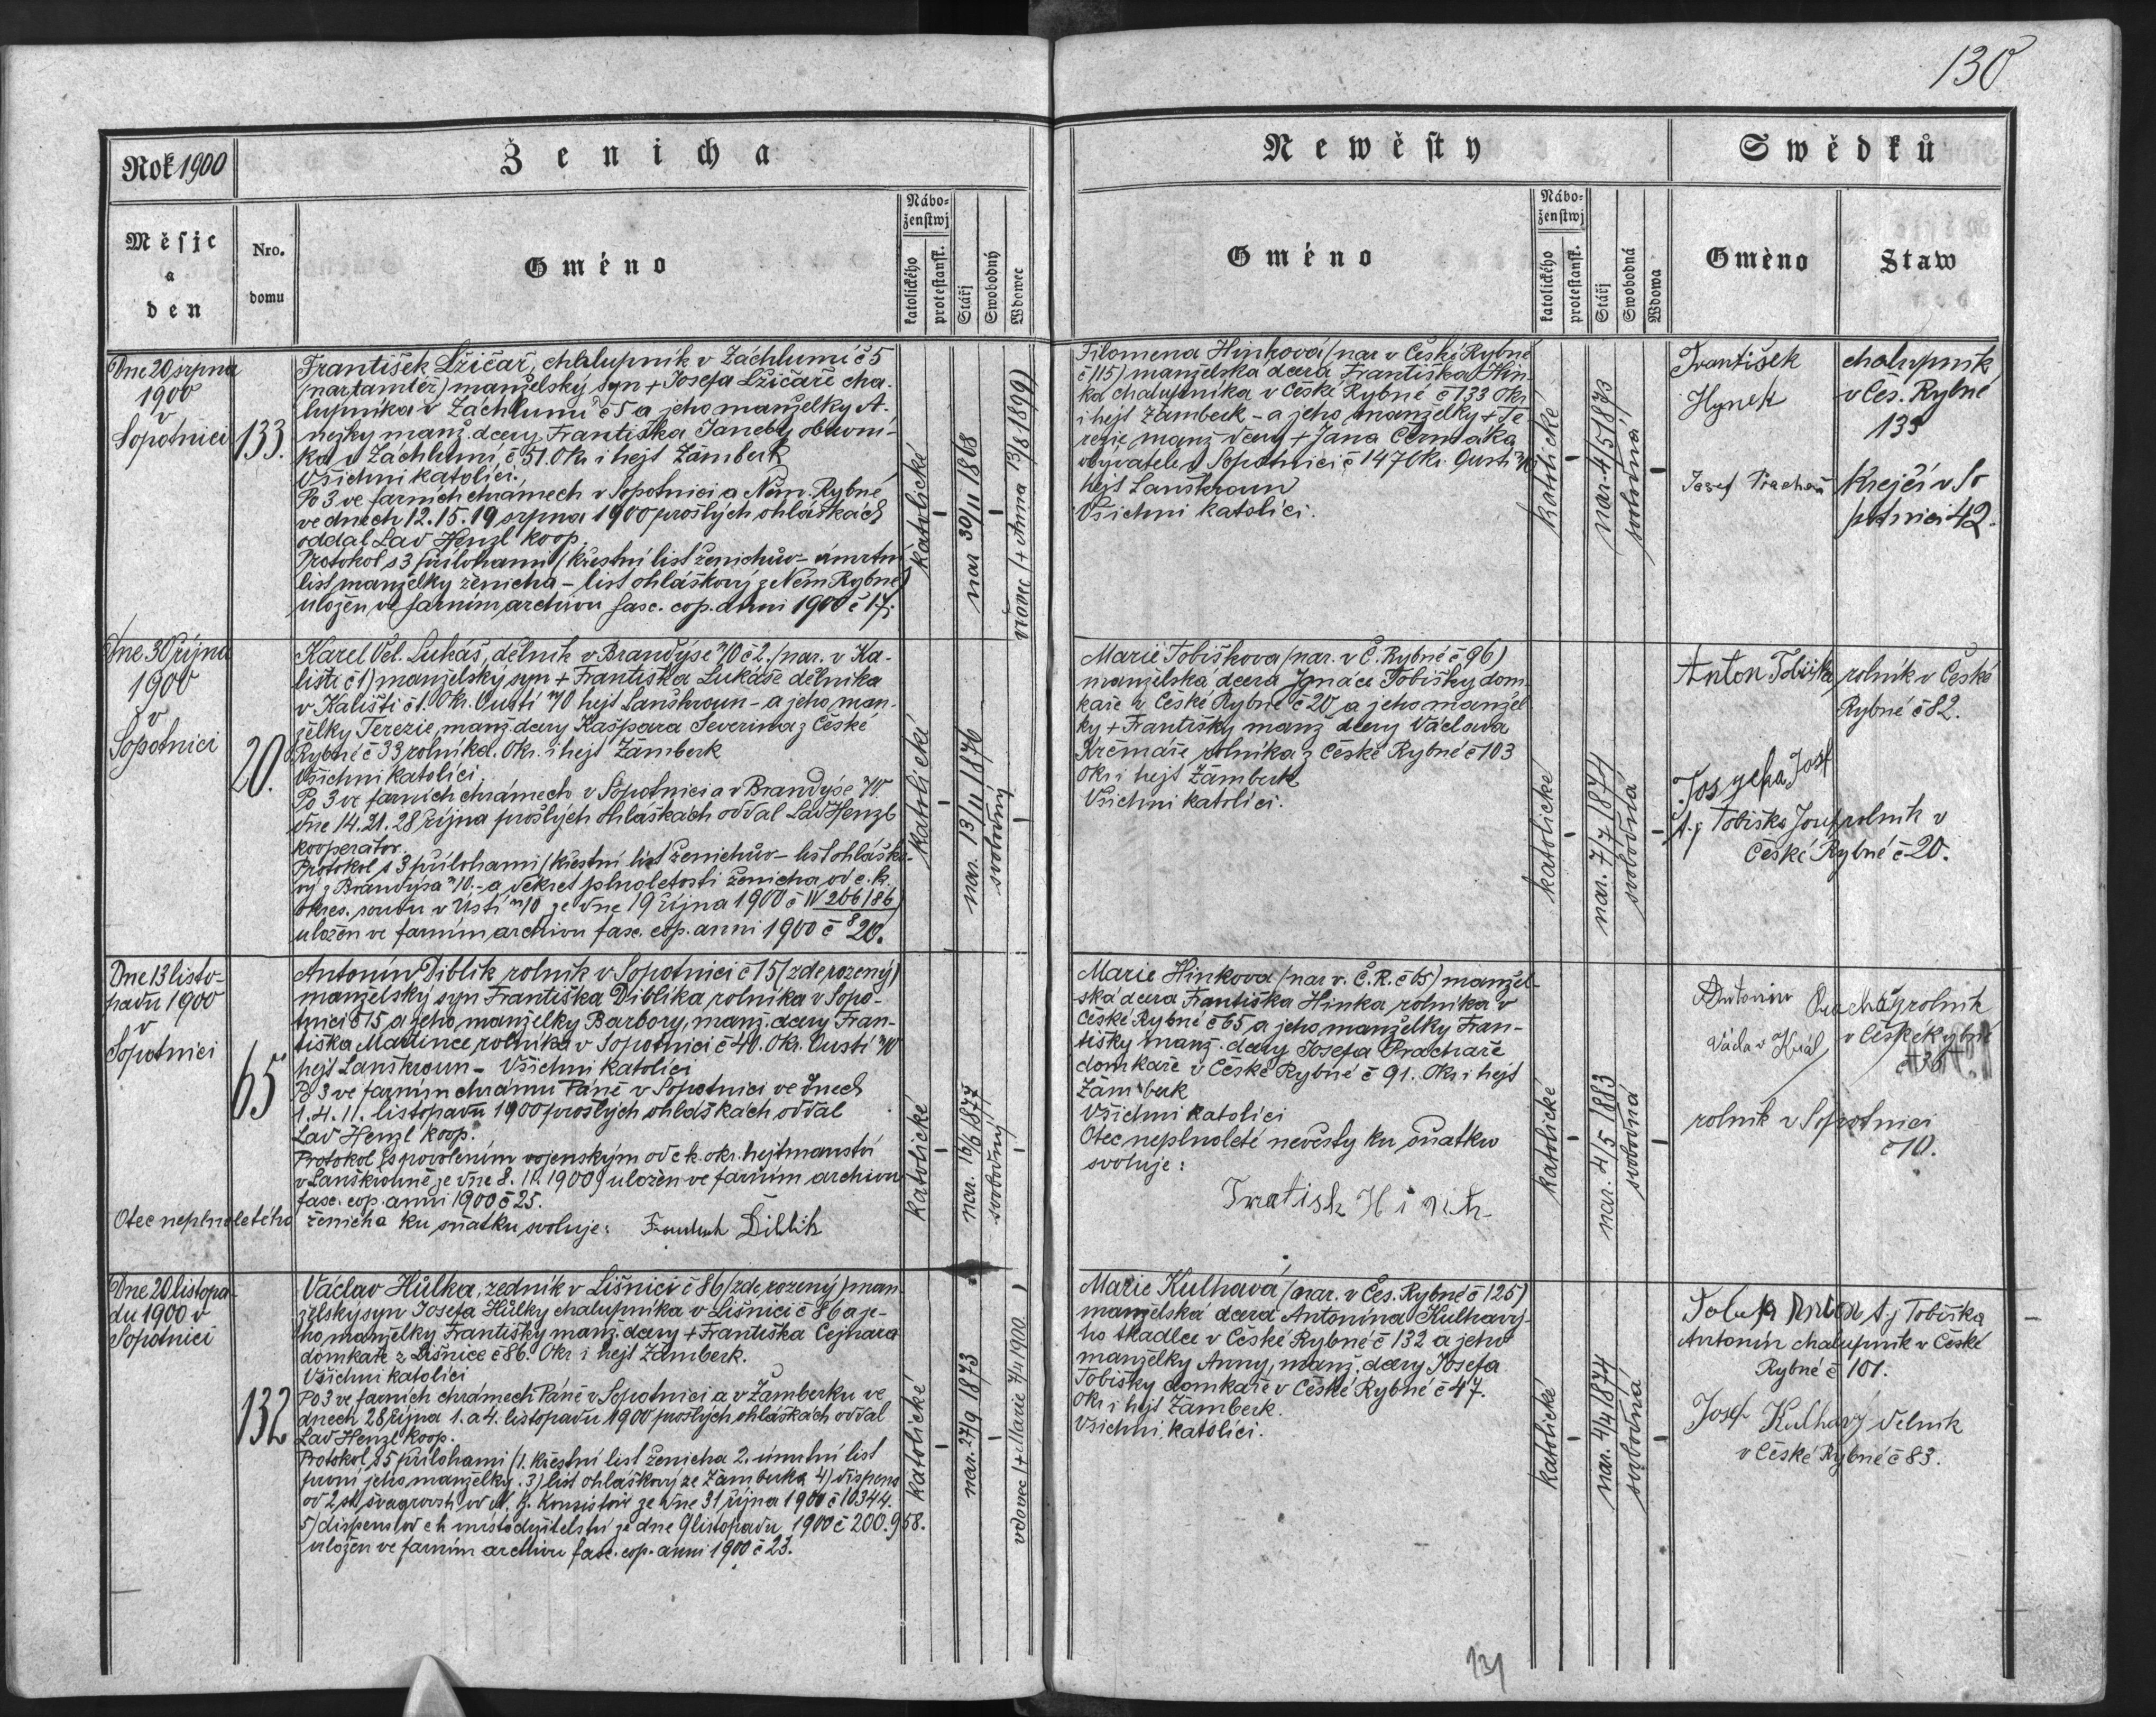 130
Rok 1900
Ženicha
Newěsty
Swědků
Měsjc
a
den
Nro.
domu
Gméno
Nábo-
ženstwj
katolického
protestanst.
Stářj
Swobodný
Wdowec
Gméno
Nábo-
ženstwj
katolického
protestanst.
Stářj
Swobodná
Wdowa
Gméno
Staw
Dne 20 srpna
1900
v
Sopotnici
133.
František Lžičař, chalupník v Záchlumí č 5
(nar tamtéž) manželský syn + Josefa Lžičaře cha-
lupníka v Záchlumí č 5 a jeho manželky A-
nežky manž. dcery Františka Janeby obuvní-
ka v Záchlumí č 51. Okr i hejt Žamberk
Všichni katolíci.
Po 3 ve farních chrámech v Sopotnici a Něm. Rybné
ve dnech 12. 15. 19 srpna 1900 prošlých ohláškách
oddal Lad Henzl koop.
Protokol s 3 přílohami (křestní list ženichův - úmrtní
list manželky ženicha - list ohláškový z Něm Rybné)
uložen ve farním archivu fasc. cop. anni 1900 č 17.
katolické
-
nar 30/11 1868
-
vdovec (+ Anna 13/8 1899)
Filomena Hinková (nar v České Rybné
č 115) manželská dcera Františka Hin-
ka chalupníka v České Rybné č 133 Okr
i hejt Žamberk - a jeho manželky + Te-
rezie manž dcery + Jana Čermáka
obyvatele v Sopotnici č 147 Okr. Oustí n/O
hejt Lanškroun
Všichni katolíci.
katolické
-
nar. 4/5 1873
svobodná
-
František
Hynek
chalupník
v Čes. Rybné
133
Josef Prachař
Krejčí v So
potnici 42.
Dne 30 října
1900
v
Sopotnici
20.
Karel Vel. Lukáš, dělník v Brandýse n/O č 2. (nar. v Ka-
lišti č 1) manželský syn + Františka Lukáše dělníka
v Kališti č 1. Okr. Oustí n/O hejt Lanškroun - a jeho man-
želky Terezie, manž dcery Kašpara Severina z České
Rybné č 33 rolníka. Okr. i hejt Žamberk
Všichni katolíci.
Po 3 ve farních chrámech v Sopotnici a v Brandýse n/O.
dne 14. 21. 28 října prošlých ohláškách oddal Lad Henzl
kooperátor.
Protokol s 3 přílohami (křestní list ženichův - list ohláško-
vý z Brandýsa n/O. - a dekret plnoletosti ženicha od c. k.
okres. soudu v Ústí n/O ze dne 19 října 1900 č IV 266/86
8
uložen ve farním archivu fasc. cop. anni 1900 č 20.
katolické
-
nar. 13/11 1876
svobodný
-
Marie Tobišková (nar. v Č. Rybné č 96)
manželská dcera Ignáce Tobišky dom-
kaře v České Rybné č 20 a jeho manžel
ky + Františky manž dcery Václava
Krčmáře rolníka z České Rybné č 103
Okr i hejt Žamberk
Všichni katolíci.
katolické
-
nar. 7/7 1874
svobodná
-
Anton Tobiška
rolník v České
Rybné č 82.
t. j Tobiška Josef rolník v
České Rybné č 20.
Dne 13 listo-
padu 1900
v
Sopotnici
65
Antonín Diblík rolník v Sopotnici č 15 (zde rozený)
manželský syn Františka Diblíka rolníka v Sopo-
tnici č 15 a jeho manželky Barbory, manž. dcery Fran-
tiška Martince rolníka v Sopotnici č 40. Okr. Oustí n/O
hejt Lanškroun - Všichni katolíci
Po 3 ve farním chrámu Páně v Sopotnici ve dnech
1. 4. 11. listopadu 1900 prošlých ohláškách oddal
Lad Henzl koop.
Protokol (s povolením vojenským od c k. okr. hejtmanství
v Lanškrouně ze dne 8. 11. 1900) uložen ve farním archivu
fasc. cop. anni 1900 č 25.
Otec neplnoletého ženicha ku sňatku svoluje: Diblik
katolické
-
nar. 16/6 1877
svobodný
-
Marie Hinkova (nar v. Č. R. č 65) manžel-
ská dcera Františka Hinka rolníka v
České Rybné č 65 a jeho manželky Fran-
tišky manž. dcery Josefa Prachaře
domkaře v České Rybné č 91. Okr i hejt
Žamberk
Všichni katolíci
Otec neplnoleté nevěsty ku sňatku
svoluje:
Fratisk Hink
katolické
-
nar. 4/5 1883
svobodná
-
Antonin Prachař rolník
v České Rybné
Václav Král
č 36
rolník v Sopotnici
č 10.
Dne 20 listopa-
du 1900 v
Sopotnici
132
Václav Hůlka, zedník v Lišnici č 86 (zde rozený) man
želský syn Josefa Hůlky chalupníka v Lišnici č 86 a je-
ho manželky Františky manž. dcery + Františka Cejnara
domkaře z Lišnice č 86. Okr i hejt Žamberk.
Všichni katolíci
Po 3 ve farních chrámech Páně v Sopotnici a v Žamberku ve
dnech 28 října 1. a 4. listopadu 1900 prošlých ohláškách oddal
Lad Henzl koop.
Protokol s 5 přílohami (1. křestní list ženicha 2. úmrtní list
první jeho manželky. 3) list ohláškový ze Žamberka 4) dispens
od 2 st švagrovst od N. b. Konsistoře ze dne 31 října 1900 č 10344.
5) dispens od c k místodržitelství ze dne 9 listopadu 1900 č 200.958.
uložen ve farním archivu fasc. cop. anni 1900 č 23.
katolické
-
nar. 27/9 1873
-
vdovec (+ Marie 7/4 1900.)
Marie Kulhavá (nar. v Čes. Rybné č 125)
manželská dcera Antonína Kulhavý-
ho tkadlce v České Rybné č 132 a jeho
manželky Anny, manž. dcery Josefa
Tobišky domkaře v České Rybné č 47.
Okr i hejt Žamberk.
Všichni katolíci.
katolické
-
nar. 4/4 1874
svobodná
-
t. j Tobiška
Antonín chalupník v České
Rybné č 101.
Josef Kulhavý dělník
v České Rybné č 83.
131